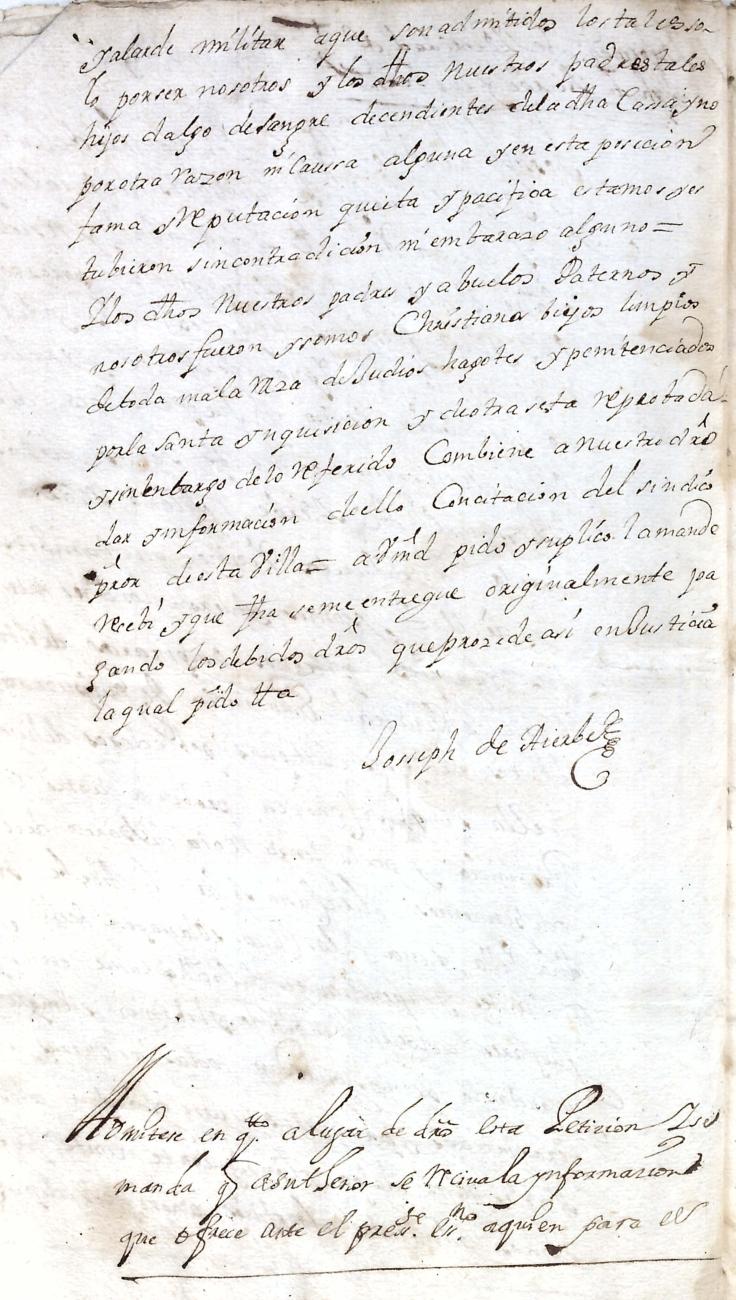 y alarde militar aque son admitidos los tales so-
lo por ser nosotros y los dhos Nuestros padres tales
hijos dalgo de sangre decendientes de la dha Cassa y no
por otra razon ni Caussa alguna y en esta posicion
fama y reputacion quieta y pacifica estamos y es
tubieron sin contradicion ni embarazo alguno =
Y los dhos Nuestros padres y abuelos Paternos y
nosotros fueron y somos Christianos biejos limpios
de toda mala raza de Judios hagotes y penitenciados
por la santa ynquisicion y de otra seta reprobada
y sin enbargo de lo referido Combiene a nuestro dro
dar ynformacion de ello Con citacion del sindico
pror de esta Villa = a Vmd pido y suplico la mande
recebir y que fha se me entregue originalmente pa
gando los debidos dros que prozede asi en Justicia
la qual pido Etta
Josseph de Aierbe
Admitese en qto a lugar de dro esta Petizion y se
manda q a su thenor se reciva la ynformazion
que ofrece ante el preste essno aquien para el